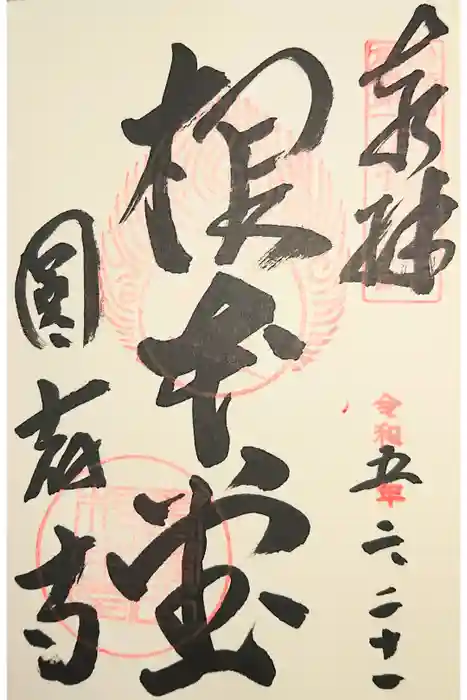 奉拝
令和五年六、二十一
根本堂
寺